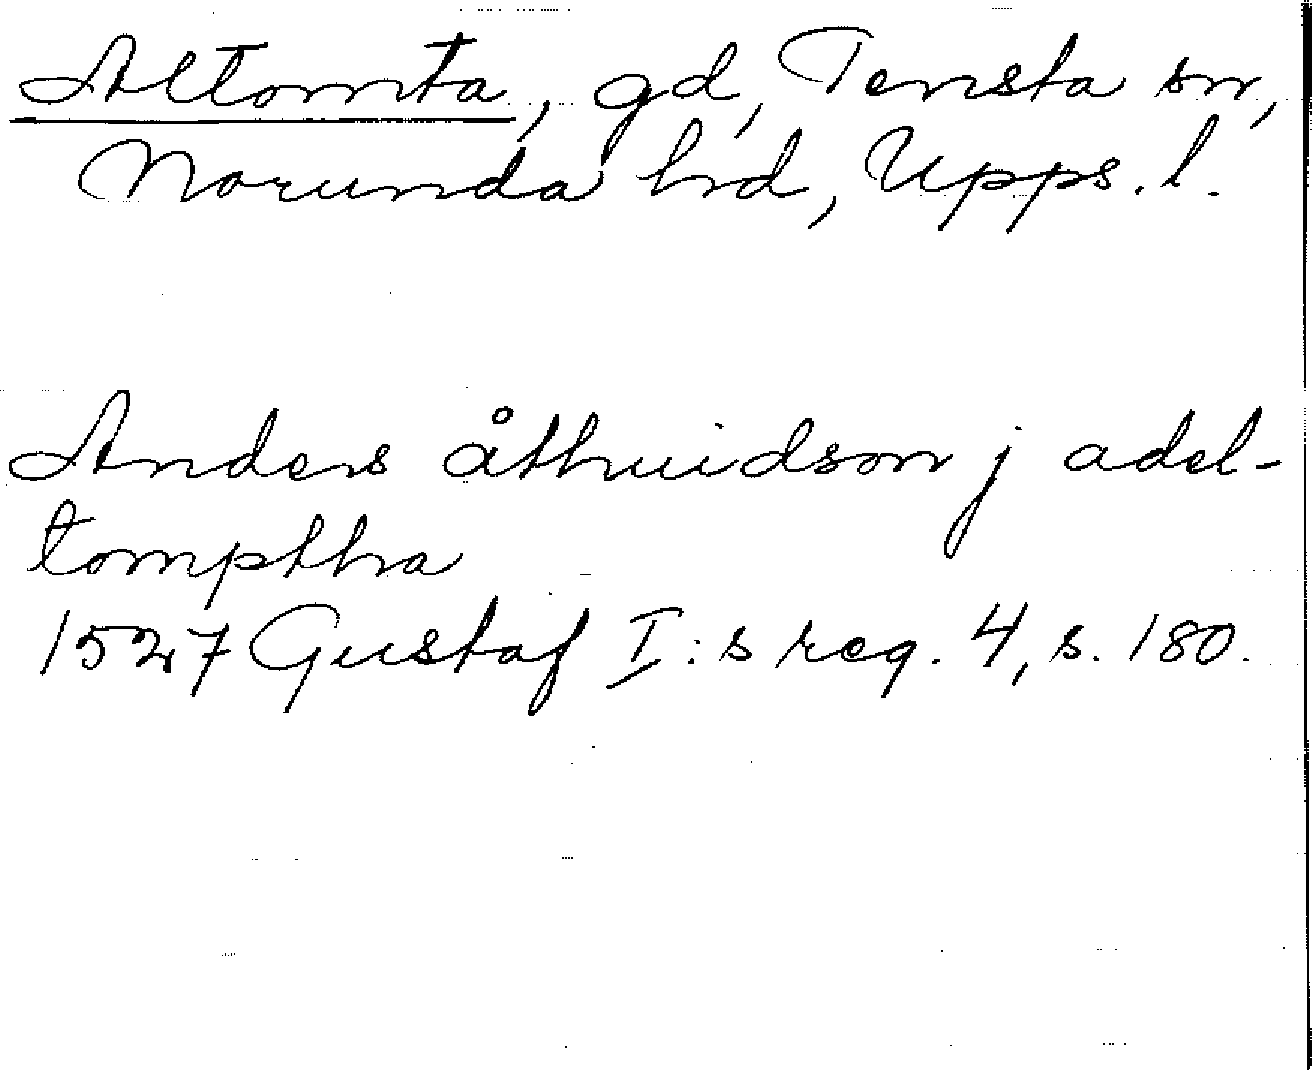 Altomta, gd, Tensta sn,
Norunda hd, Upps. l.
Anders åthuidson j adel-
tompthra
1527 Gustaf I:s reg. 4, s. 180.